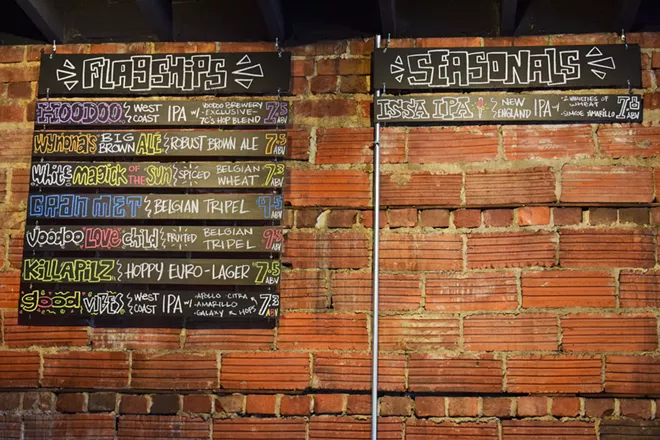 Flagships
HOODOO WEST COAST IPA VOODOO BREWERY W/-EXCLUSIVE- 7C'S HOP BLEND ABV
Wynona's BIG BROWN ALE ROBUST BROWN ALE 7.5 ABV
White Magick OF THE Sun SPICED BELGIAN WHEAT ABV
Gran Met BELGIAN TRIPEL 9.5 ABV
Voodoo Love Child FRUITED BELGIAN TRIPEL ABV
KILLAPILZ HOPPY EURO-LAGER 7.5 ABV
good VIBES WEST COAST IPA W/- APOLLO CITRA AMARILLO GALAXY HOPS 7.3 ABV
SEASONALS
ISSA IPA NEW ENGLAND IPA W/- 2 VARIETIES OF WHEAT AMARILLO ABV